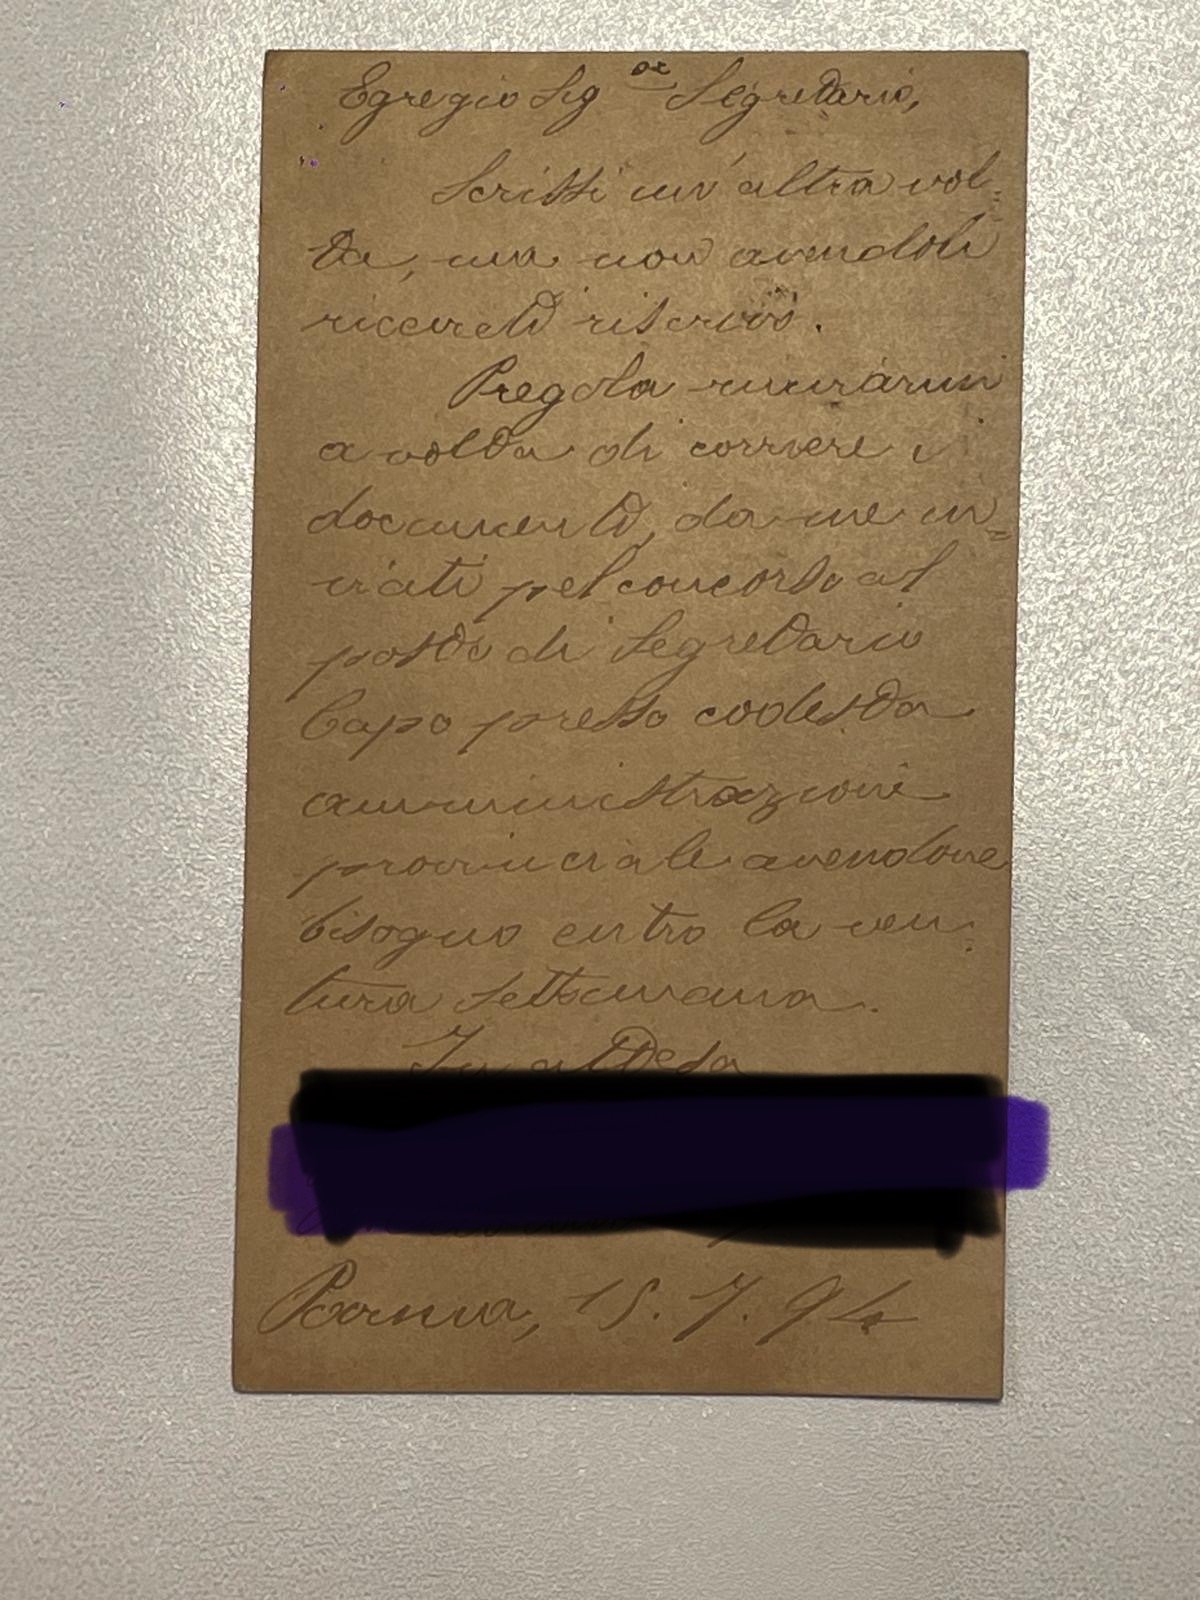 Egregio Sig.or Segretario,
Scrissi un'altra vol=
ta, ma non avendoli
ricevuti riscrivo.
Pregola inviarmi
a volta di corriere i
documenti, da me in=
viati pel concorso al
posto di Segretario
Capo presso codesta
amministrazione
provinciale avendone
bisogno entro la ven=
tura settimana.
In attesa
Parma, 15.7.94